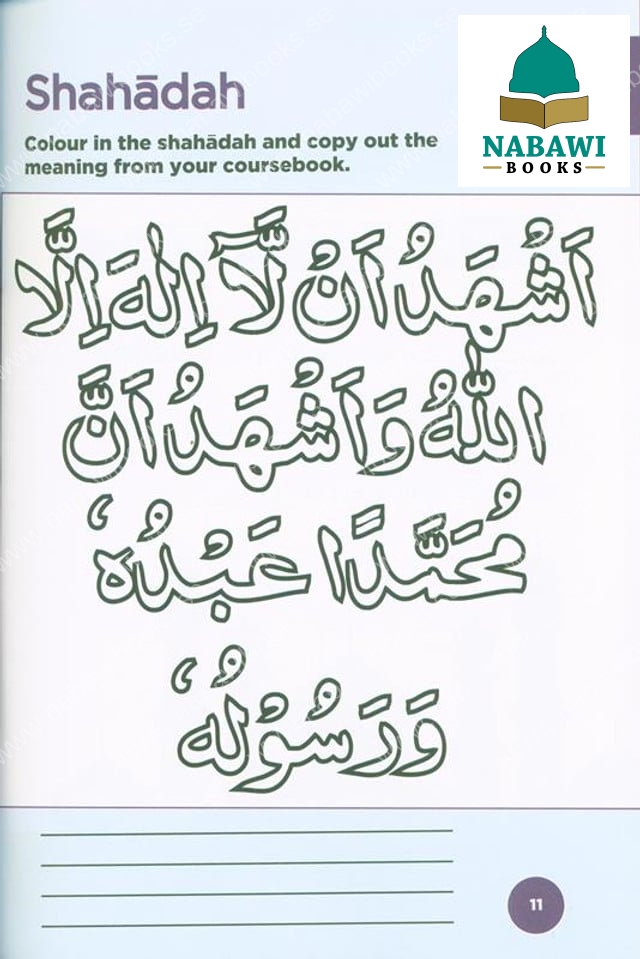 Shahādah
NABAWI
BOOKS
Colour in the shahādah and copy out the
meaning from your coursebook.
اَشْهَدُ اَنْ لَّآ اِلٰهَ اِلَّا
اللّٰهُ وَاَشْهَدُ اَنَّ
مُحَمَّدًا عَبْدُهٗ
وَرَسُوْلُهٗ
11